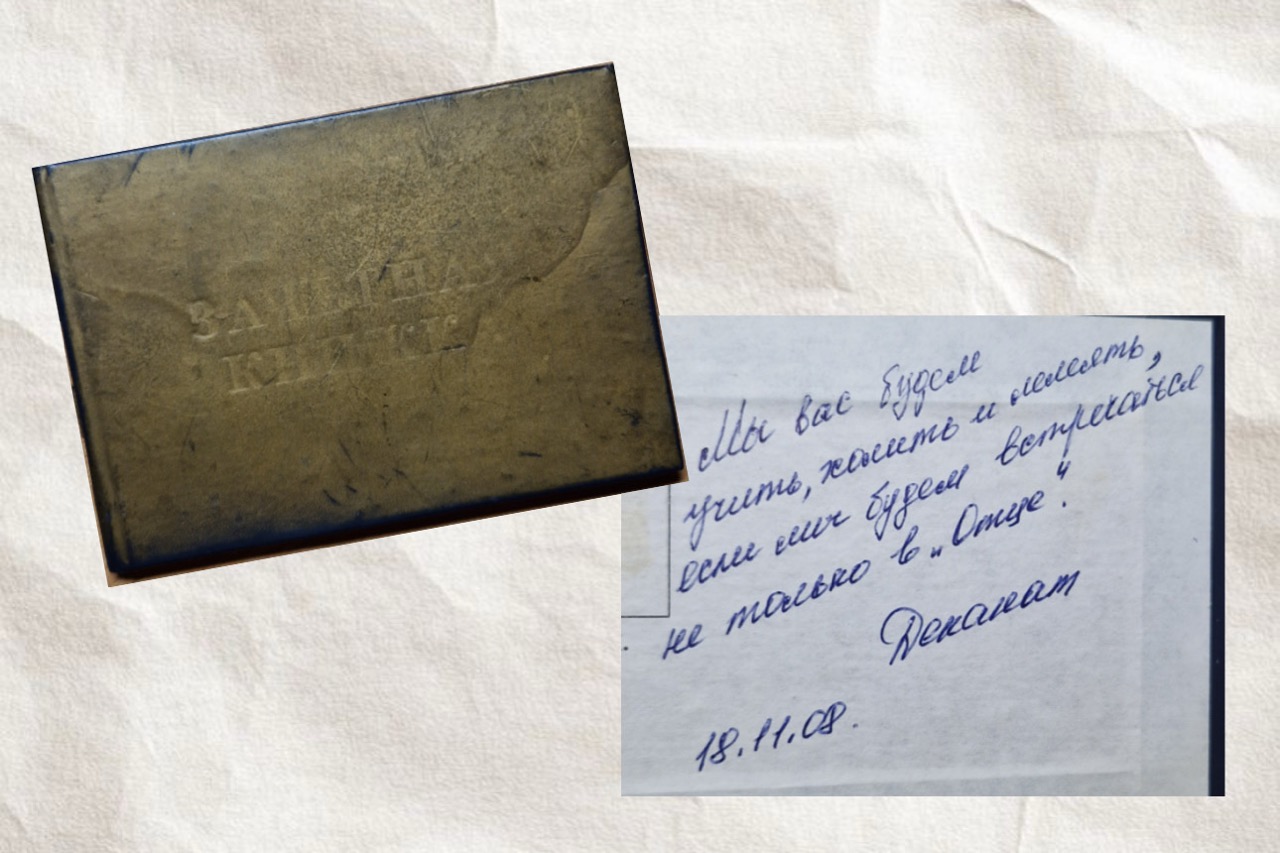 ЗАЧЕТНА
КНИЖК
Мы вас будем
учить, холить и лелеять,
если мы будем встречаться
не только в „Отце“.
Деканат
18.11.08.